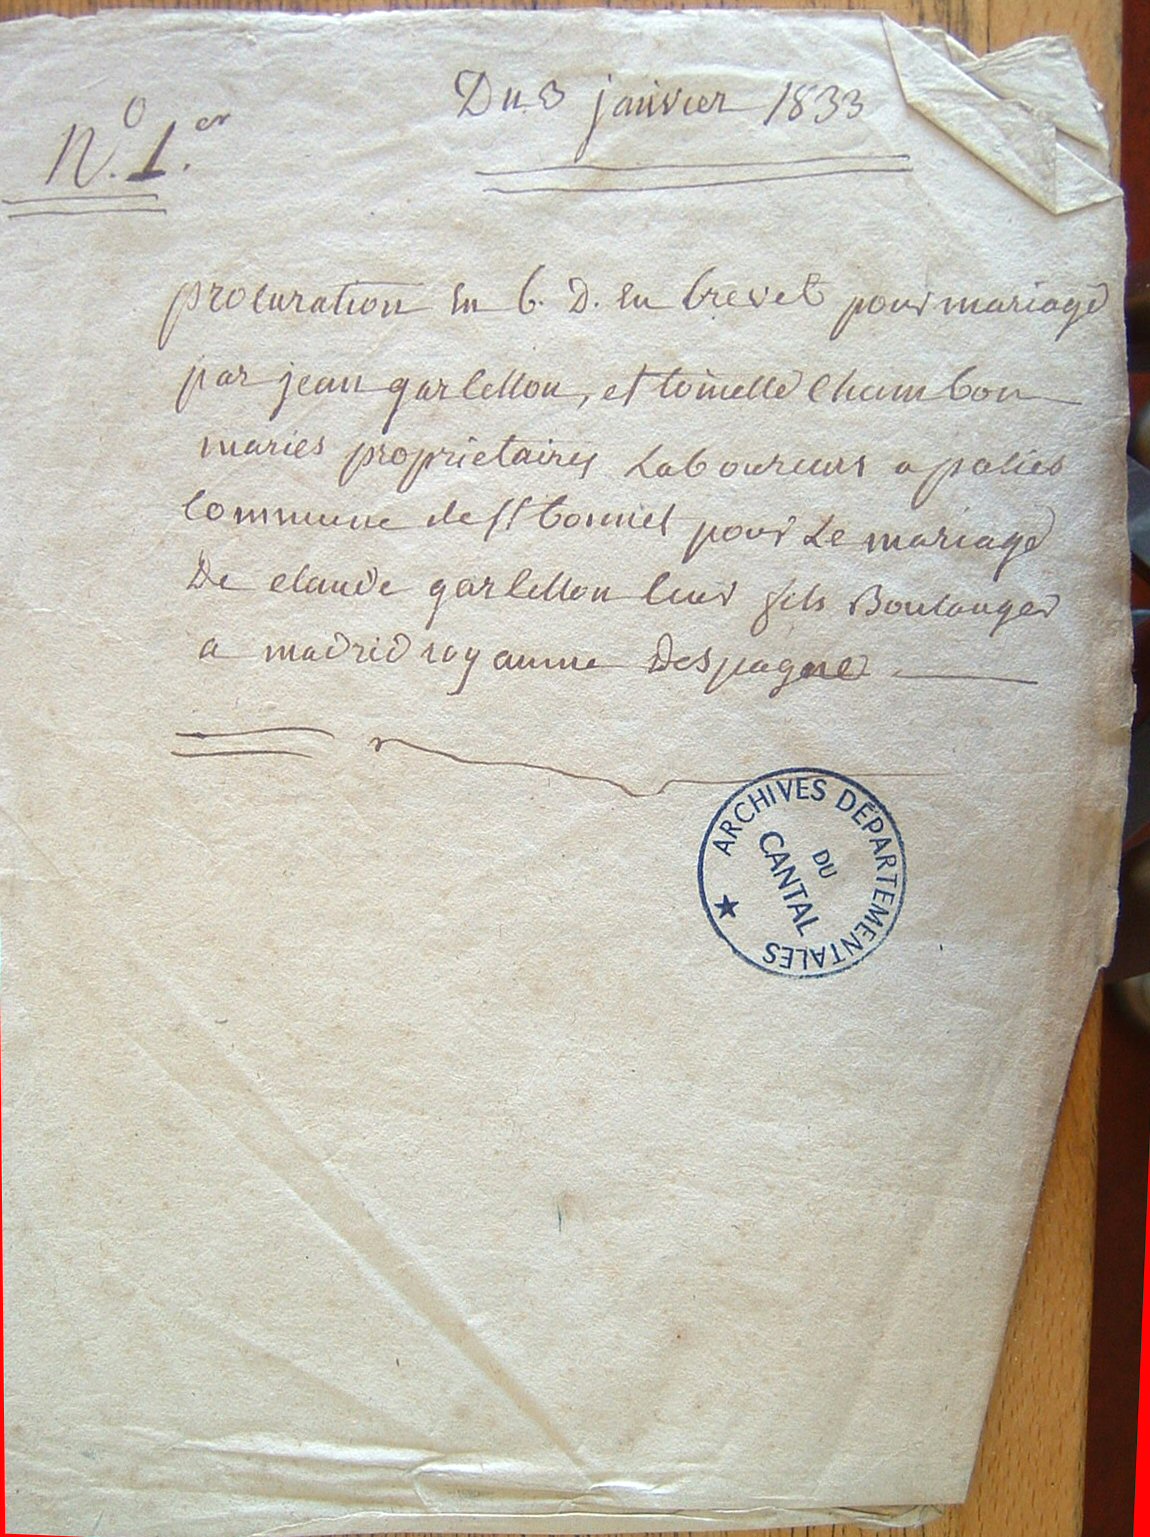 Du 3 janvier 1833
N.º 1.er
procuration en b. D. en brevet pour mariage
par jean garcelon, et toinette Chambon
mariés propriétaires Laboureurs a
Commune de st bonnet pour Le mariage
De claude garcelon leur fils Boulanger
a madrid royaume Despagne
ARCHIVES DÉPARTEMENTALES
DU
CANTAL